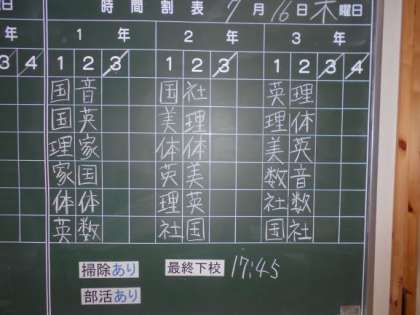 曜日 時間割表 7月16日木曜日
年 1年 2年 3年
3 4 1 2 3 1 2 3 1 2 3 4
国 音 国 社 英 理
国 英 美 理 理 体
理 家 体 体 美 英
家 国 英 美 数 音
体 体 理 英 社 数
英 数 社 国 国 社
掃除あり 最終下校 17:45
部活あり